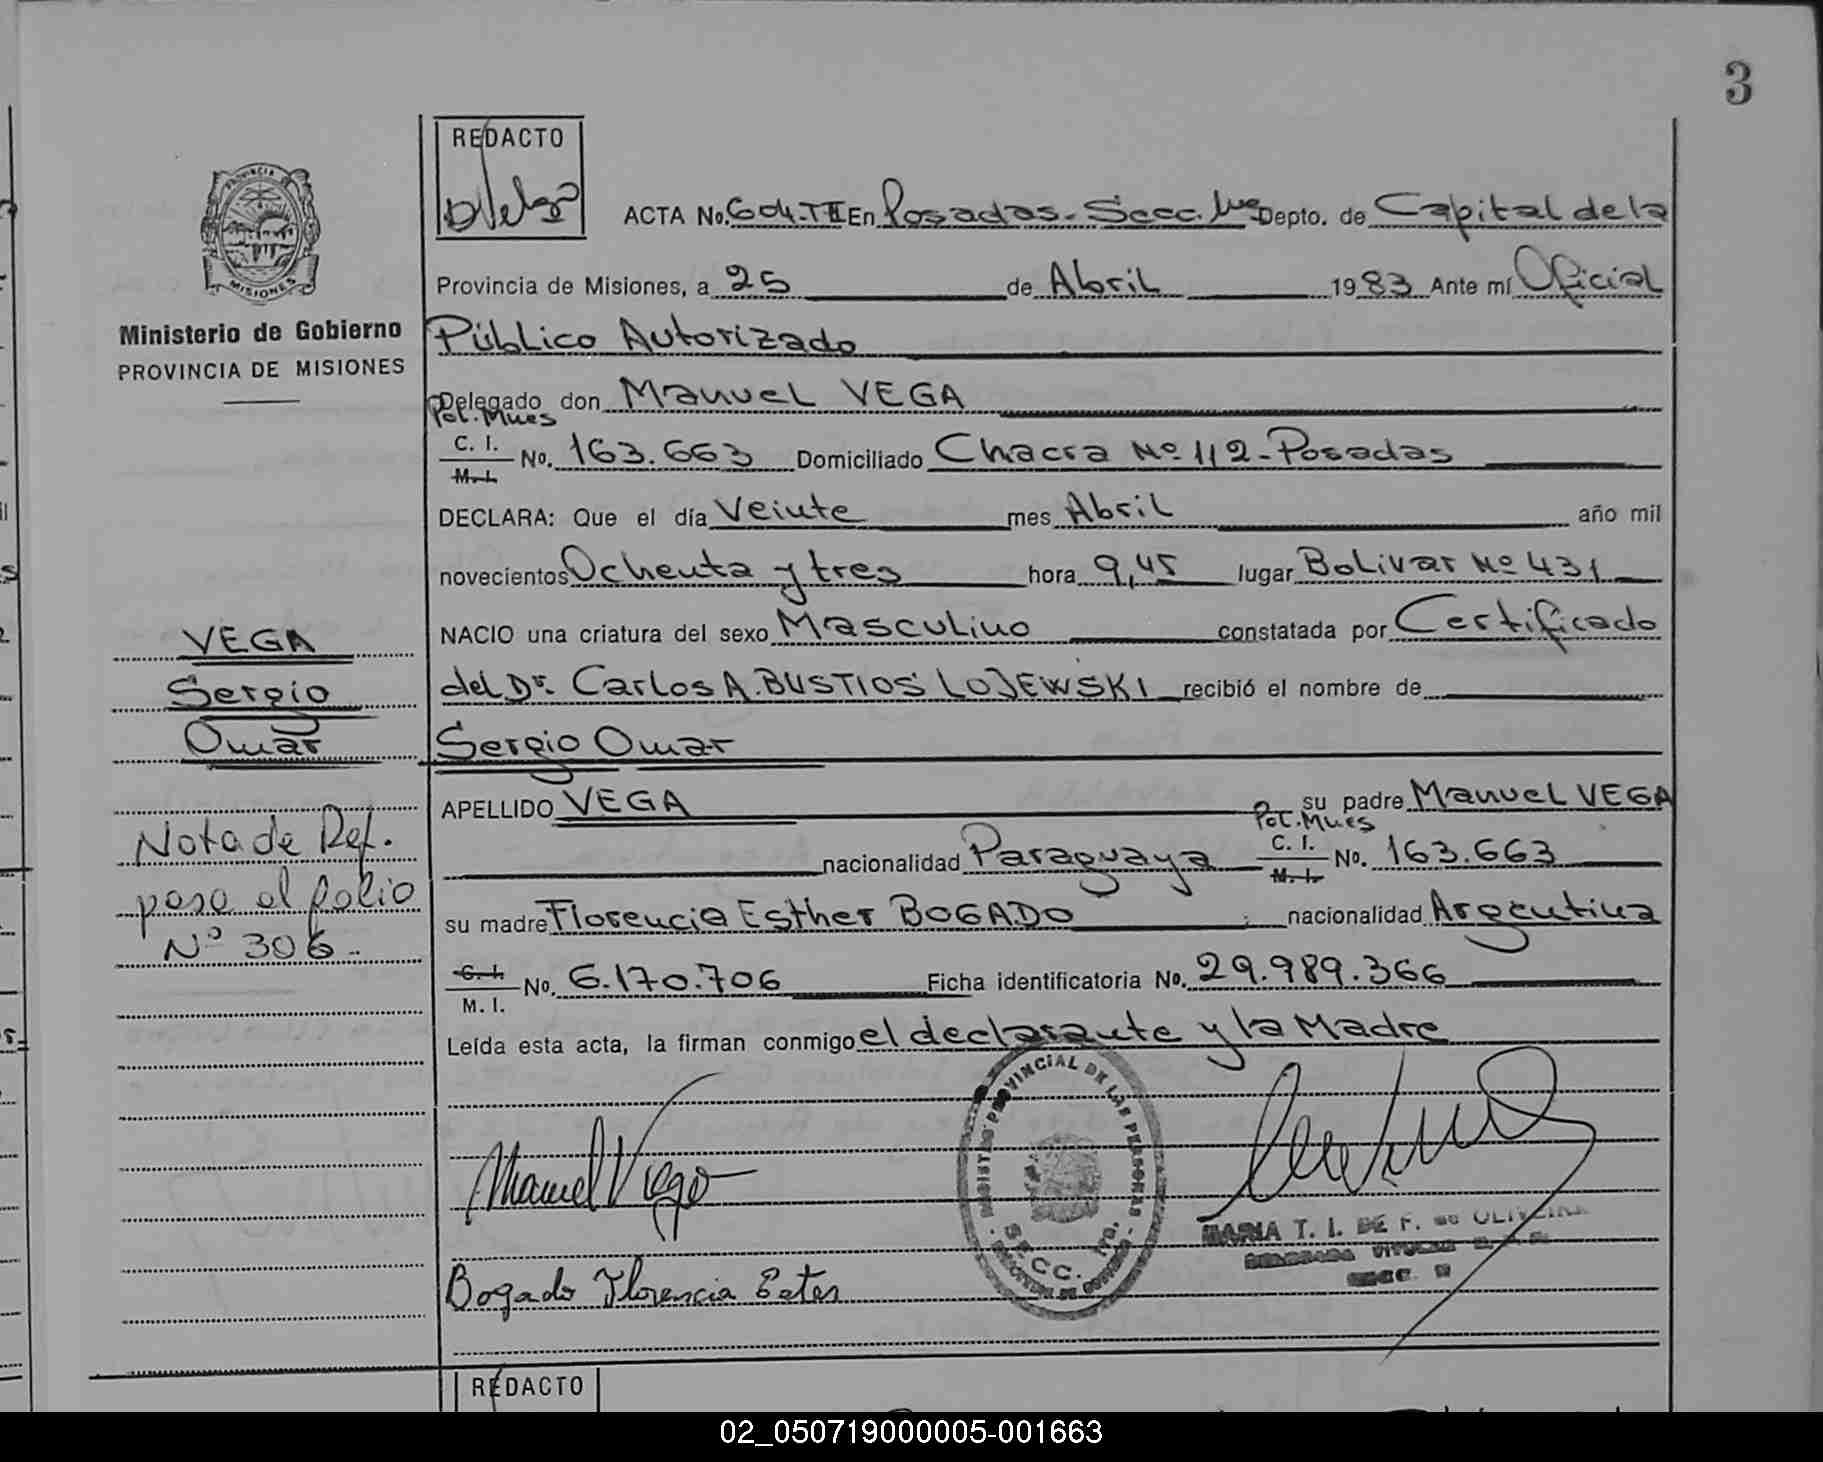 3
REDACTO
ACTA No. 604.TII En Posadas-Secc. 1ra Depto. de Capital de la
Provincia de Misiones, a 25 de Abril 1983 Ante mí Oficial
Público Autorizado
Delegado don Manuel VEGA
Pol. Mnes
C. I.
M. I.
No. 163.663 Domiciliado Chacra Nº 112-Posadas
DECLARA: Que el día Veinte mes Abril año mil
novecientos Ochenta y tres hora 9,45 lugar Bolivar Nº 431
NACIO una criatura del sexo Masculino constatada por Certificado
del Dr. Carlos A. BUSTIOS LOJEWSKI recibió el nombre de
Sergio Omar
APELLIDO VEGA su padre Manuel VEGA
Pol. Mnes
nacionalidad Paraguaya C. I. M. I. No. 163.663
su madre Florencia Esther BOGADO nacionalidad Argentina
C. I.
M. I.
No. 6.170.706 Ficha identificatoria No. 29.989.366
Leída esta acta, la firman conmigo el declarante y la Madre
Manuel Vega
Bogado Florencia Ester
PROVINCIAL DE LAS PERSONAS
SECC. 1ra.
MARIA T. I. DE F. de OLIVEIRA
PROVINCIA
MISIONES
Ministerio de Gobierno
PROVINCIA DE MISIONES
VEGA
Sergio
Omar
Nota de Ref.
pasa al folio
Nº 306
REDACTO
02_050719000005-001663